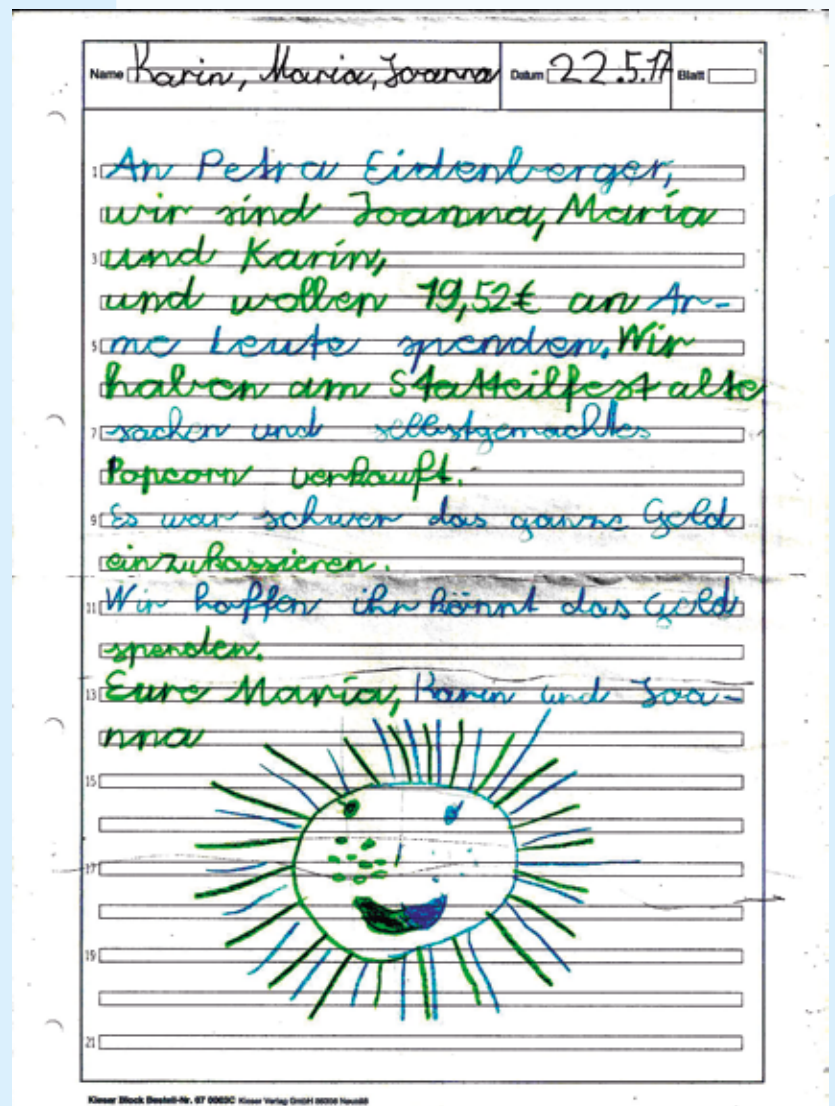 Name Karin, Maria, Joanna Datum 22.5.17 Blatt
1 An Petra Eidenberger,
wir sind Joanna, Maria
3 und Karin,
und wollen 19,52€ an Ar-
5 me Leute spenden. Wir
haben am Stattteilfest alte
7 sachen und selbstgemachtes
Popcorn verkauft.
9 Es war schwer das ganze Geld
einzukassieren.
11 Wir hoffen ihr könnt das Geld
spenden.
13 Eure Maria, Karin und Joa-
nna
15
17
19
21
Kieser Block Bestell-Nr. 67 0003C Kieser Verlag GmbH 86356 Neusäß